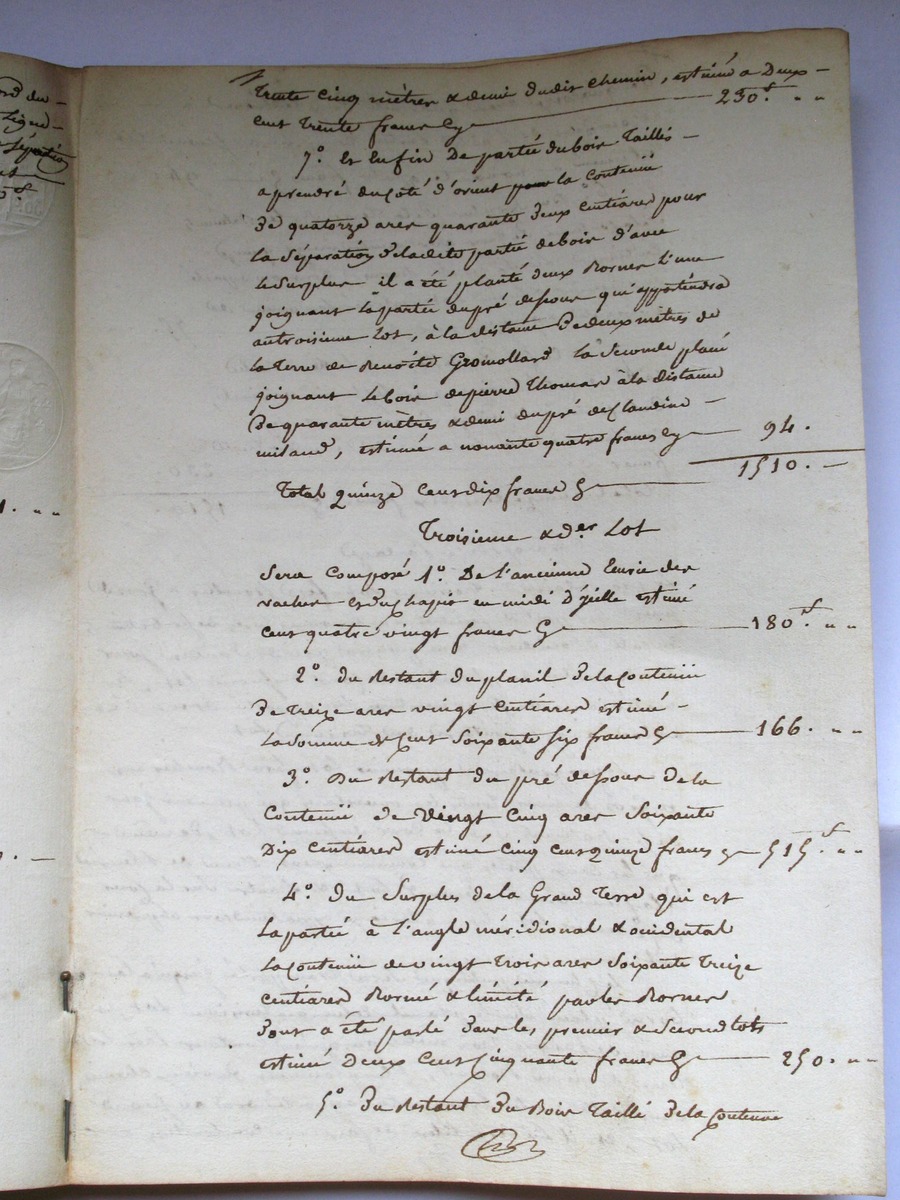 ord du –
Ligne –
Séparation
trente cinq mètres & demi dudit chemin, estimé a Deux –
cent trente francs cy 230.f " "
7.° Et Enfin De partié du bois Taillés –
a prendré du Coté d'orient pour la Contenüe
De quatorze ares quarante deux Centiares pour
La Séparation de ladite partié de bois d'avec
le Surplus il a été planté deux Bornes l'une
joignant la partié du pré dessous qui appartiendra
au troisieme Lot, à la distance De deux mètres de
la Terre de Benoite Gromollard la Seconde placé
joignant le bois de pierre Thomas à la distance
De quarante mètres & demi du pré de Claudine –
miland, estimée a nonante quatre francs cy 94.
Total quinze Cent dix francs Cy 1510. –
Troisieme & d.er Lot
Sera Composé 1.° De l'ancienne Ecurie des
vaches et du chapis en midi D'ycelle estimé
Cent quatre vingt francs Cy 180.f " "
2.° du Restant du planil de la Contenüe
De Treize ares vingt Centiares estimé –
La Somme de Cent Soixante Six francs Cy 166. " "
3.° Du Restant du pré dessous de la
Contenüe de Vingt Cinq ares Soixante
Dix Centiares estimé Cinq Cent quinze francs cy 515.f " "
4.° du Surplus de la Grand Terre qui est
la partié à l'angle méridional & occidental
la Contenüe de vingt Trois ares Soixante Treize
Centiares Borné & limité par les Bornes
dont a été parlé dans les premier & Second lots
estimé Deux Cent Cinquante francs Cy 250. " "
5.° du Restant du Bois Taillé de la Contenue